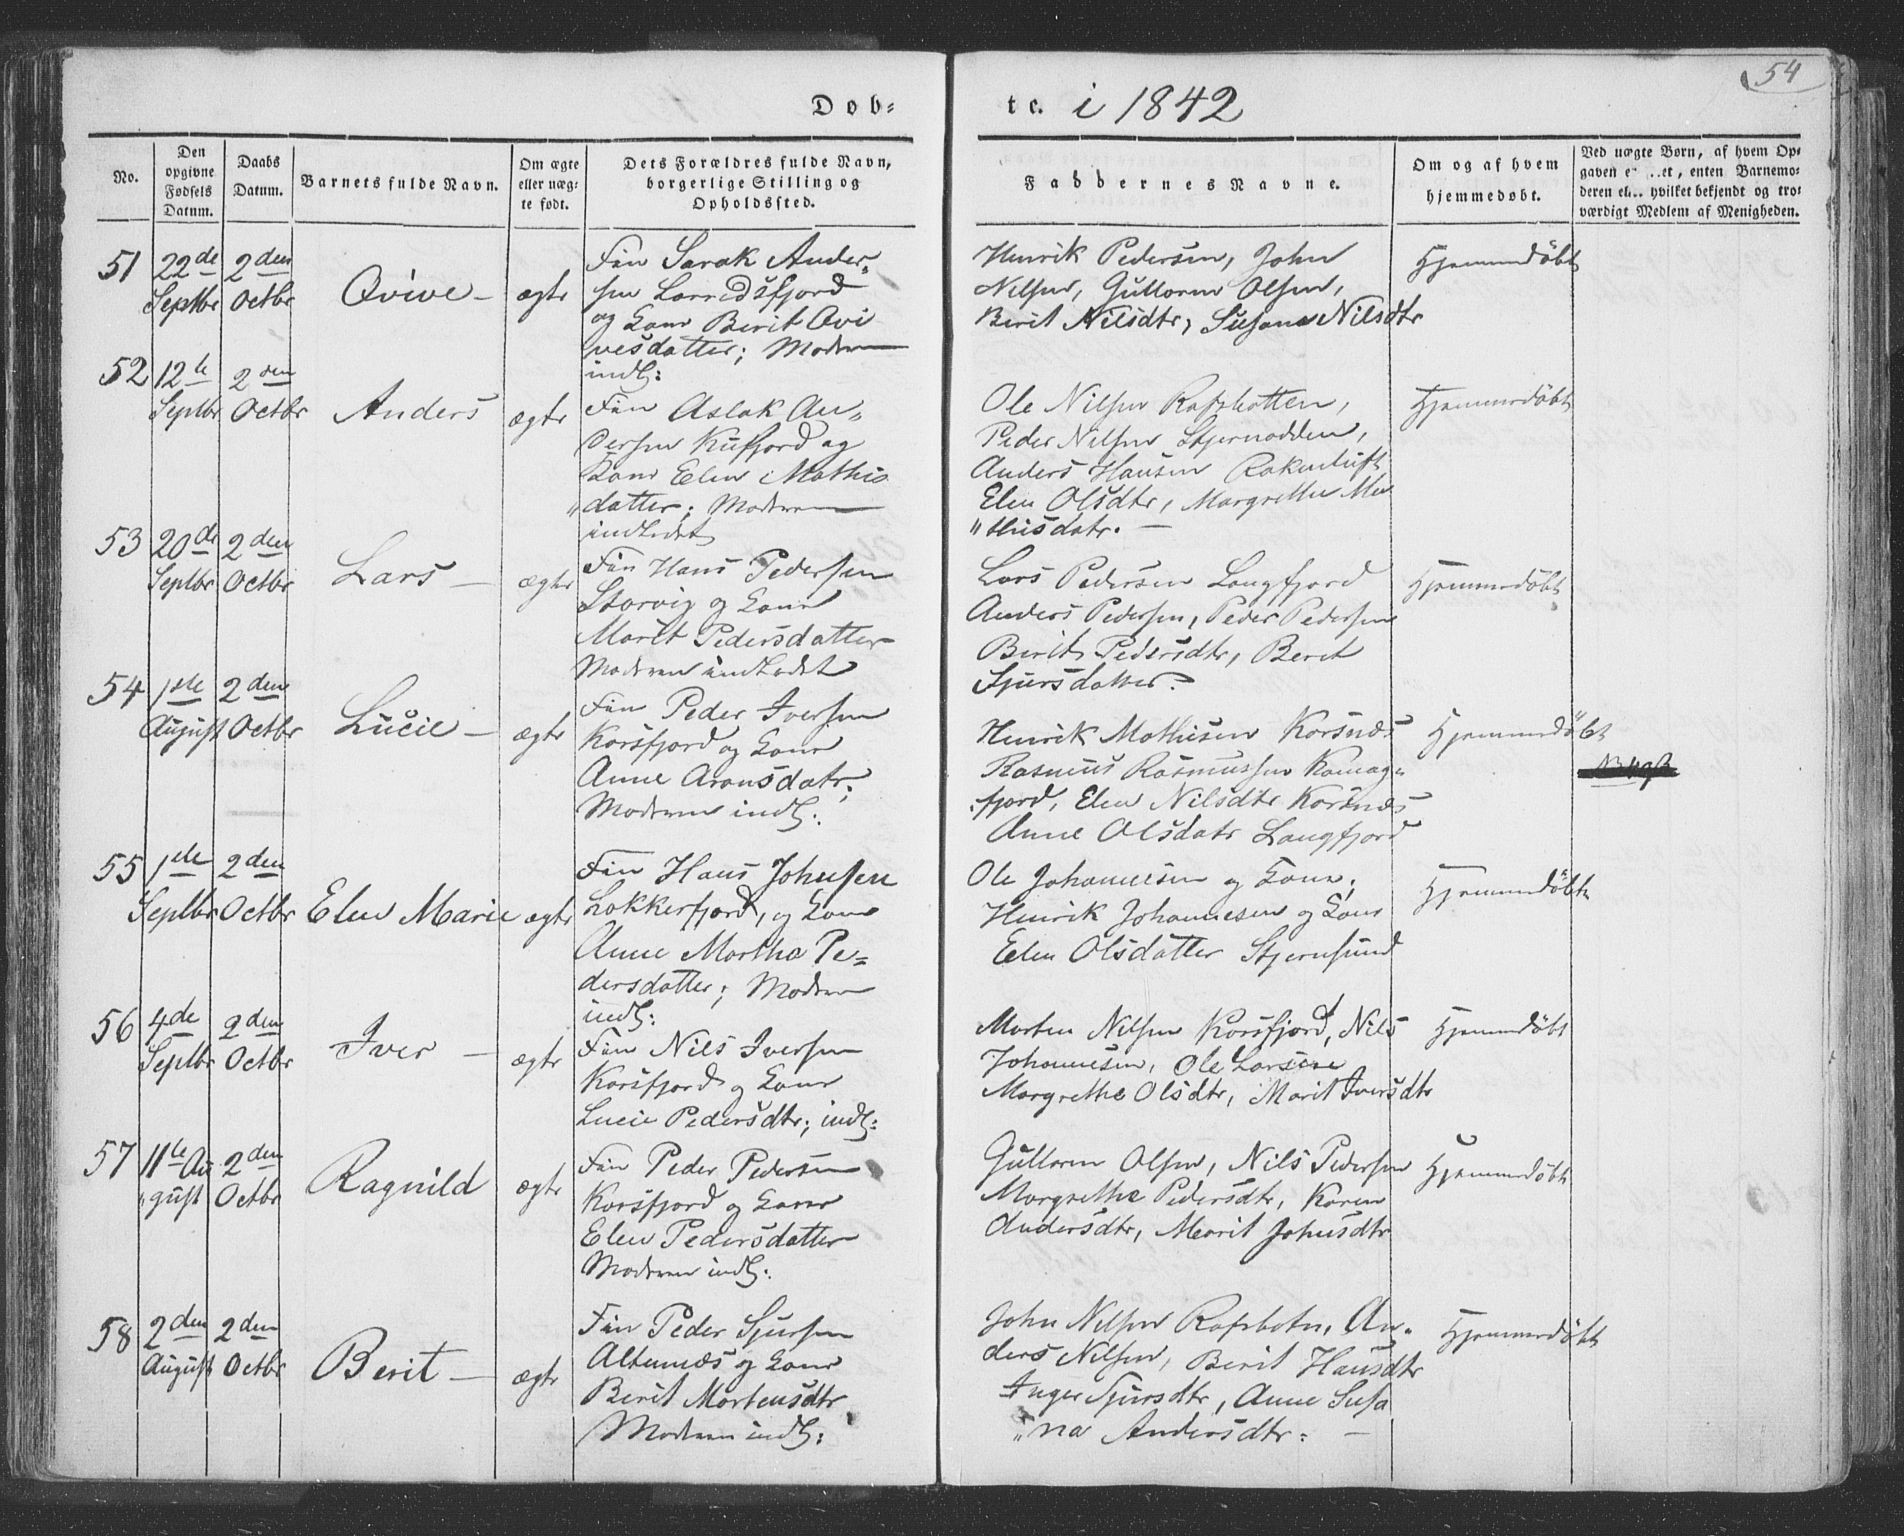 54
Døb-
te. i 1842
No.
Den
opgivne
Fødsels
Datum.
Daabs
Datum.
Barnets fulde Navn.
Om ægte
eller uæg-
te født.
Dets Forældres fulde Navn,
borgerlige Stilling og
Opholdssted.
Faddernes Navne.
Om og af hvem
hjemmedøbt.
Ved uægte Børn, af hvem Op-
gaven er, enten Barnemo-
deren el. hvilket bekjendt og tro-
værdigt Medlem af Menigheden.
51
22de
Septbr
2den
Octbr
Ovive
ægte
Fin Sarak Ander-
sen
og Kone Berit Ovi
vesdatter; Moderen
indl:
Henrik Pedersen, John
Nilsen, Guttorm Olsen,
Berit Nilsdtr, Susana Nilsdtr
Hjemmedöbt
52
12te
Septbr
2den
Octbr
Anders
ægte
Fin Aslak An-
dersen Kufjord og
Kone Elen Mathis
"datter; Moderen
indledet
Ole Nilsen Rafsbotten,
Peder Nilsen Stjernodden,
Anders Hansen
Elen Olsdtr, Margrethe Ma
"thisdatr.
Hjemmedöbt
53
20de
Septbr
2den
Octbr
Lars
ægte
Fin Hans Pedersen
Storvig og Kone
Marit Pedersdatter
Moderen indledet
Lars Pedersen Langfjord
Anders Pedersen, Peder Pedersen
Berit Pedersdtr, Berit
Sjursdatter.
Hjemmedöbt
54
1ste
August
2den
Octbr
Lucie
ægte
Fin Peder Iversen
Korsfjord og Kone
Anne Aronsdatr;
Moderen indl:
Henrik Mathisen Korsnæs
Rasmus Rasmussen Komag-
fjord, Elen Nilsdtr Korsnæs
Anne Olsdatr Langfjord
Hjemmedöbt
55
1ste
Septbr
2den
Octbr
Elen Marie
ægte
Fin Hans Johnsen
Lokkerfjord, og Kone
Anne Martha Pe-
dersdatter; Moderen
indl:
Ole Johannesen og Kone,
Henrik Johannesen og Kone
Elen Olsdatter Stjernsund
Hjemmedöbt
56
4de
Septbr
2den
Octbr
Iver
ægte
Fin Nils Iversen
Korsfjord og Kone
Lucie Pedersdtr; indl:
Morten Nilsen Korsfjord, Nils
Johannesen, Ole Larsen
Margrethe Olsdtr, Marit Iversdtr
Hjemmedöbt
57
11te Au
"gust
2den
Octbr
Ragnild
ægte
Fin Peder Pedersen
Korsfjord og Kone
Elen Pedersdatter
Moderen indl:
Guttorm Olsen, Nils Pedersen
Margrethe Pedersdtr, Karen
Andersdtr, Marit Johnsdtr
Hjemmedöbt
58
2den
August
2den
Octbr
Berit
ægte
Fin Peder Sjursen
Altennæs og Kone
Berit Mortensdtr
Moderen indl:
John Nilsen Rafsbotn, An-
ders Nilsen, Berit Hansdtr
Inger Sjursdtr, Anne Susa
"na Andersdtr.
Hjemmedöbt